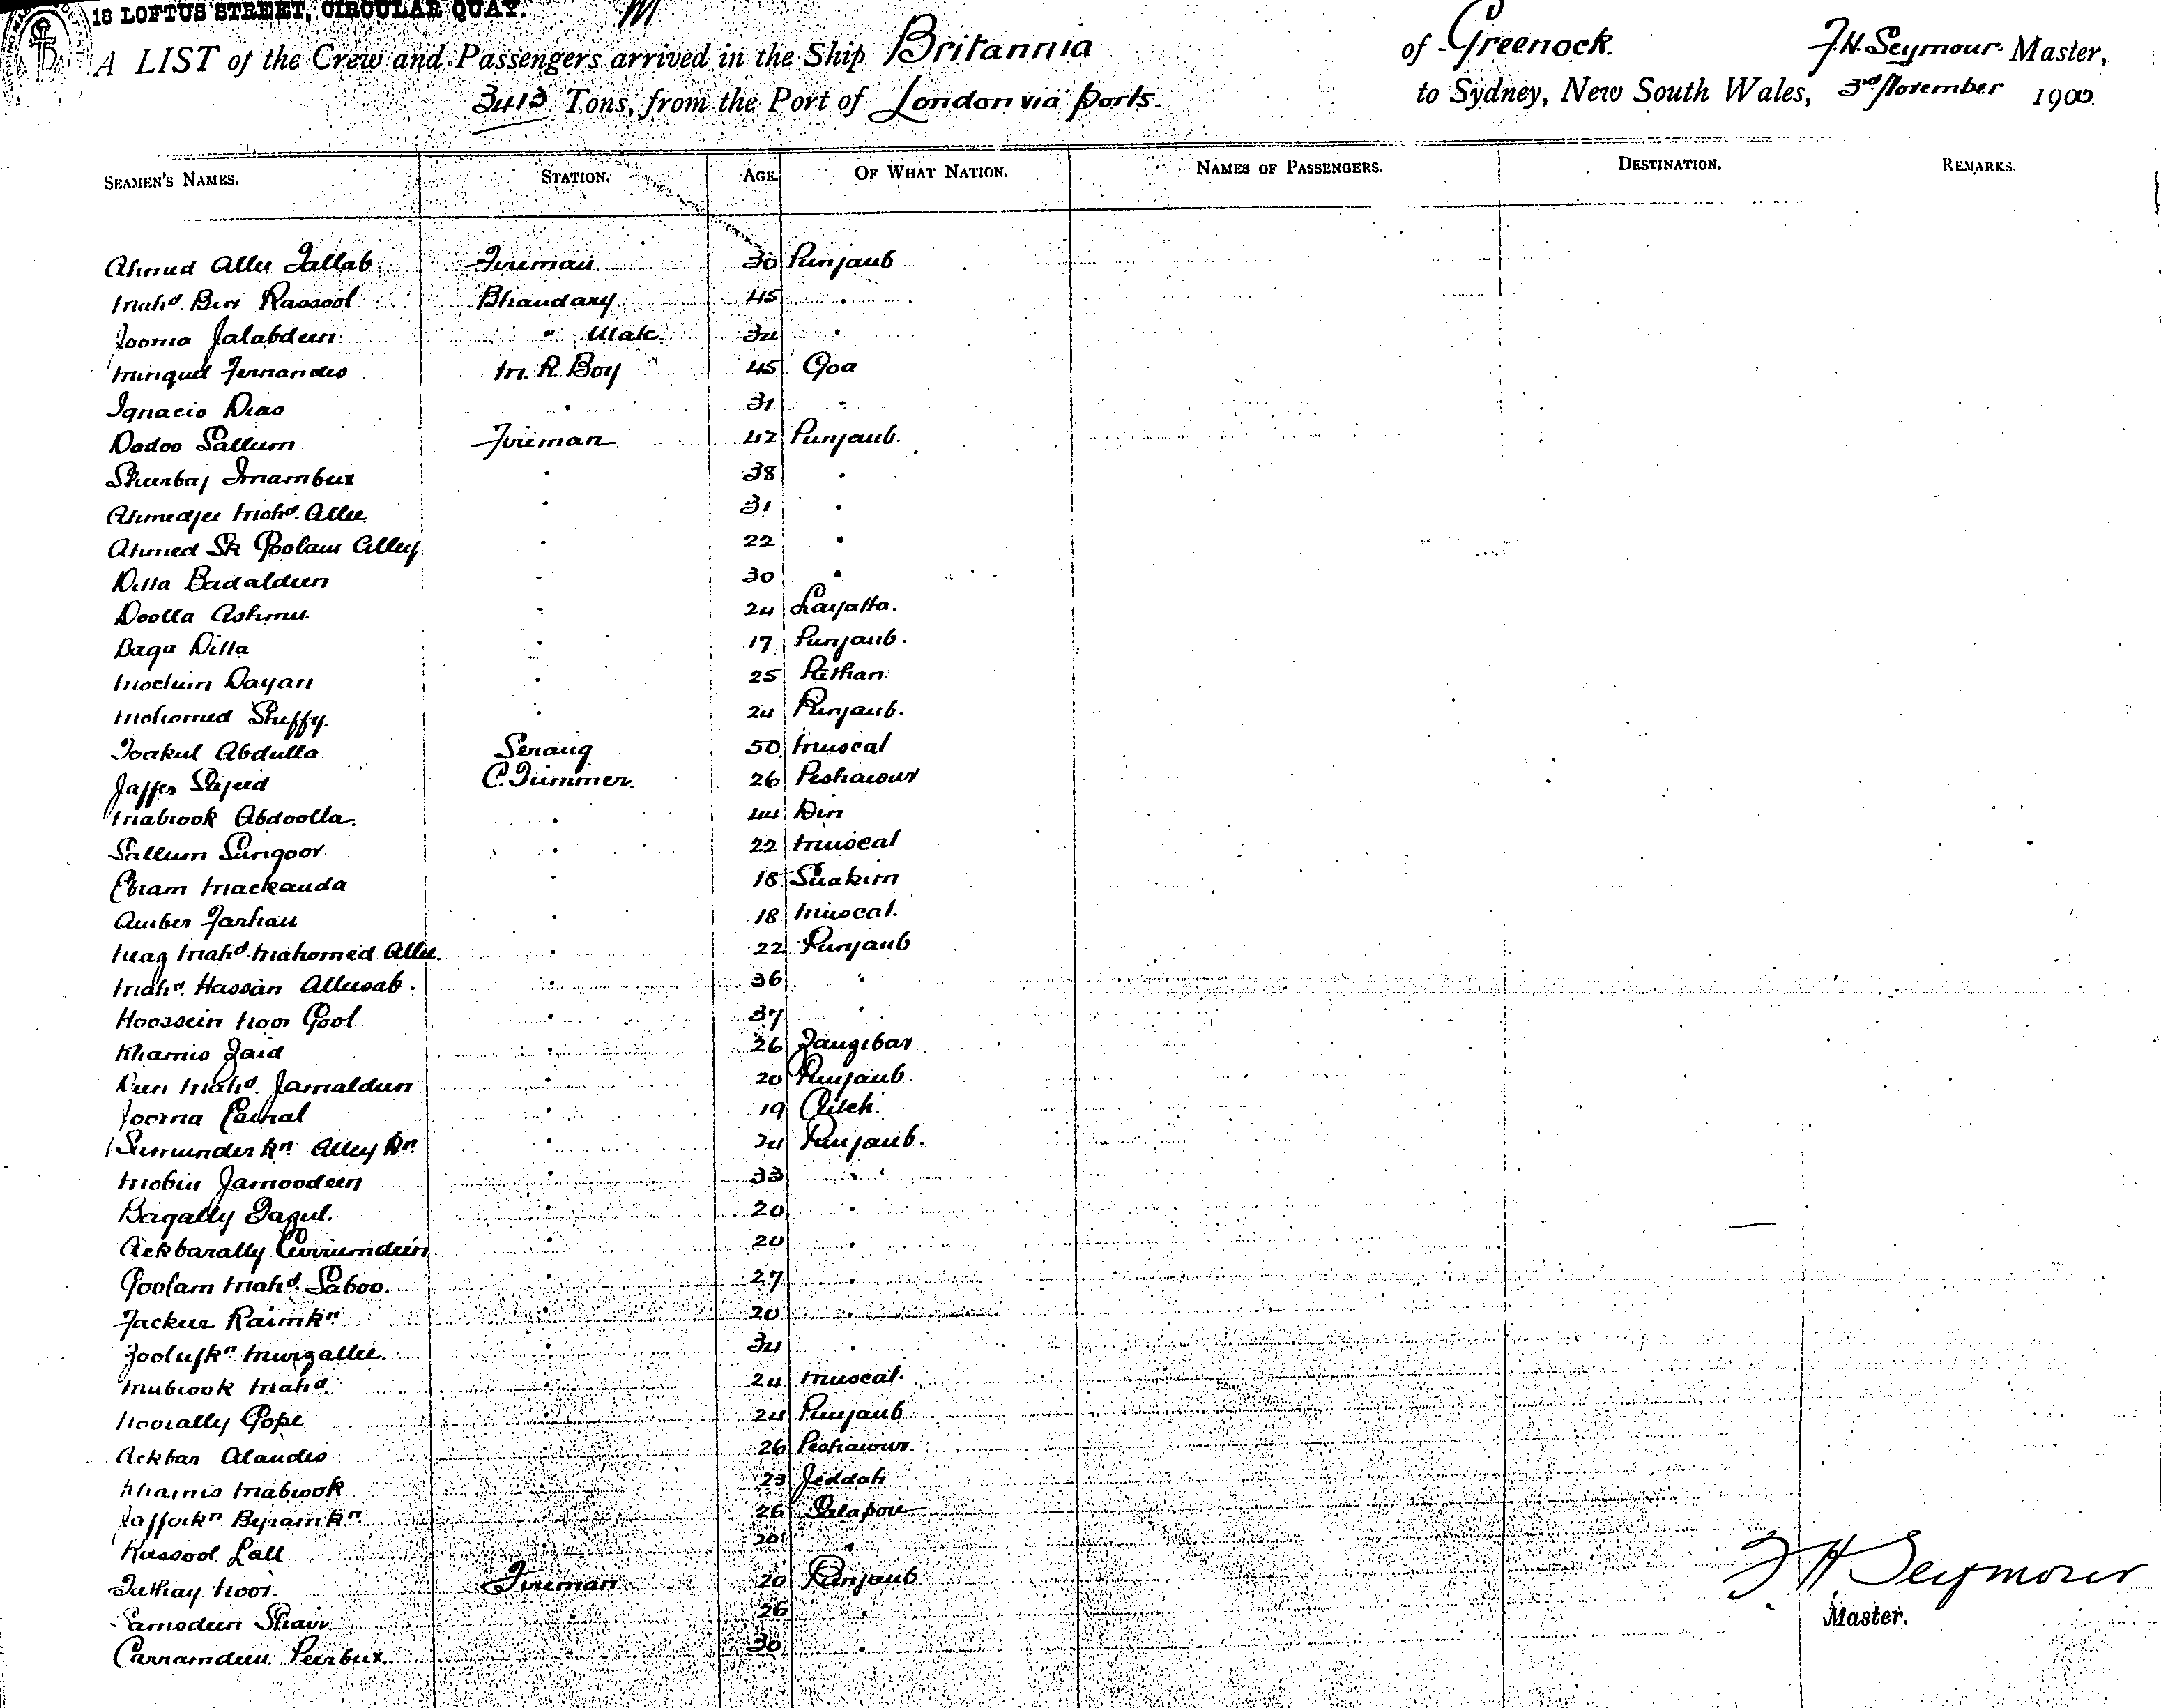 18 LOFTUS STREET, CIRCULAR QUAY.
A LIST of the Crew and Passengers arrived in the Ship Britannia of Greenock. F.H. Seymour. Master,
3413 Tons, from the Port of London via ports. to Sydney, New South Wales, 3rd November 1900.
SEAMEN'S NAMES. STATION. AGE. OF WHAT NATION. NAMES OF PASSENGERS. DESTINATION. REMARKS.
Ahmed Allee Tallab Fireman 30 Punjaub
Mahd. Bux Rassool Bhandary 45 "
Jooma Jalabdeen " Mate 34 "
Minguel Fernandes M. R. Boy 45 Goa
Ignacio Dias " 31 "
Dodoo Sallum Fireman 42 Punjaub.
Sheerbaj Imambux " 38 "
Ahmedjee Mohd. Allee " 31 "
Ahmed Sk Goolam Alley " 22 "
Ditta Badaldeen " 30 "
Doolla " 24
Baga Ditta " 17 Punjaub.
Dayan " 25 Pathan.
Mohomed Shuffy. " 24 Punjaub.
Toakul Abdulla Serang 50 Muscat
Jaffer Syeed C. Trimmer. 26 Peshawur
Mabrook Abdoolla. " 44 Din
Sallum Sungoor " 22 Muscat
Mackauda " 18 Suakim
Amber Farhan " 18 Muscat.
Mahd. Mahomed Allee. " 22 Punjaub
Mahd. Hassan Alleesab. " 36 "
Hoossein Noor Gool " 37 "
Khamis Zaid " 26 Zangibar
Deen Mahd. Jamaldeen " 20 Punjaub.
Jooma Esmal " 19 Cutch.
Surrunder Kn Alley Kn " 24 Punjaub.
Mobin Jamoodeen " 33 "
Bagally Fazul. " 20 "
Ackbarally Currumdeen " 20 "
Goolam Mahd. Saboo. " 27 "
Fackeer Raimkn " 20 "
Zoolufkn Murzallee. " 34 "
Mubrook Mahd " 24 Muscat.
Noorally Gope " 24 Punjaub
Ackbar Alaudis " 26 Peshawur.
Khamis Mabrook " 23 Jeddah
Jafferkn Byramkn " 26
Russool Lall 20 "
Noor. Fireman 20 Punjaub
Samsdeen Shair " 26 "
Carramdeen Peerbux. 30 "
F H Seymour
Master.